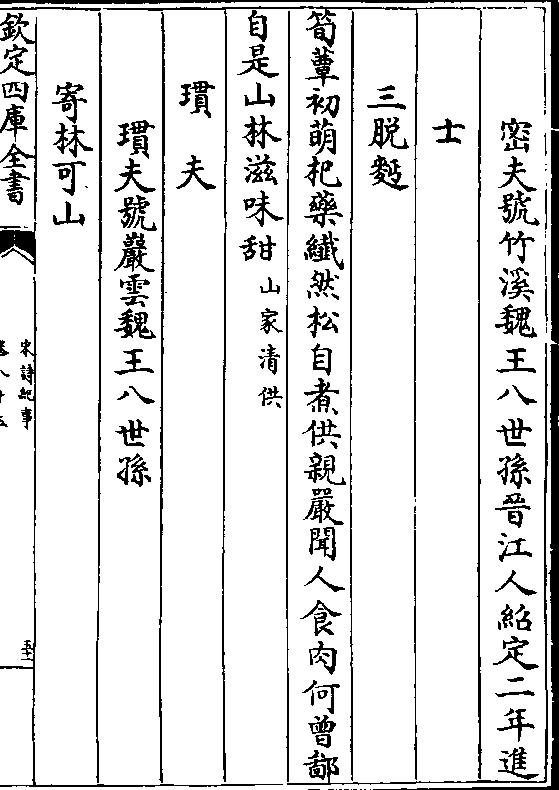 密夫號竹溪魏王八世孫晉江人紹定二年進
士
三脱麪
筍蕈初萌杞藥纎然松自煮供親嚴聞人食肉何曾鄙
自是山林滋味甜 山家清供
瓆夫
瓆夫號巖雲魏王八世孫
寄林可山
欽定四庫全書
宋詩紀事